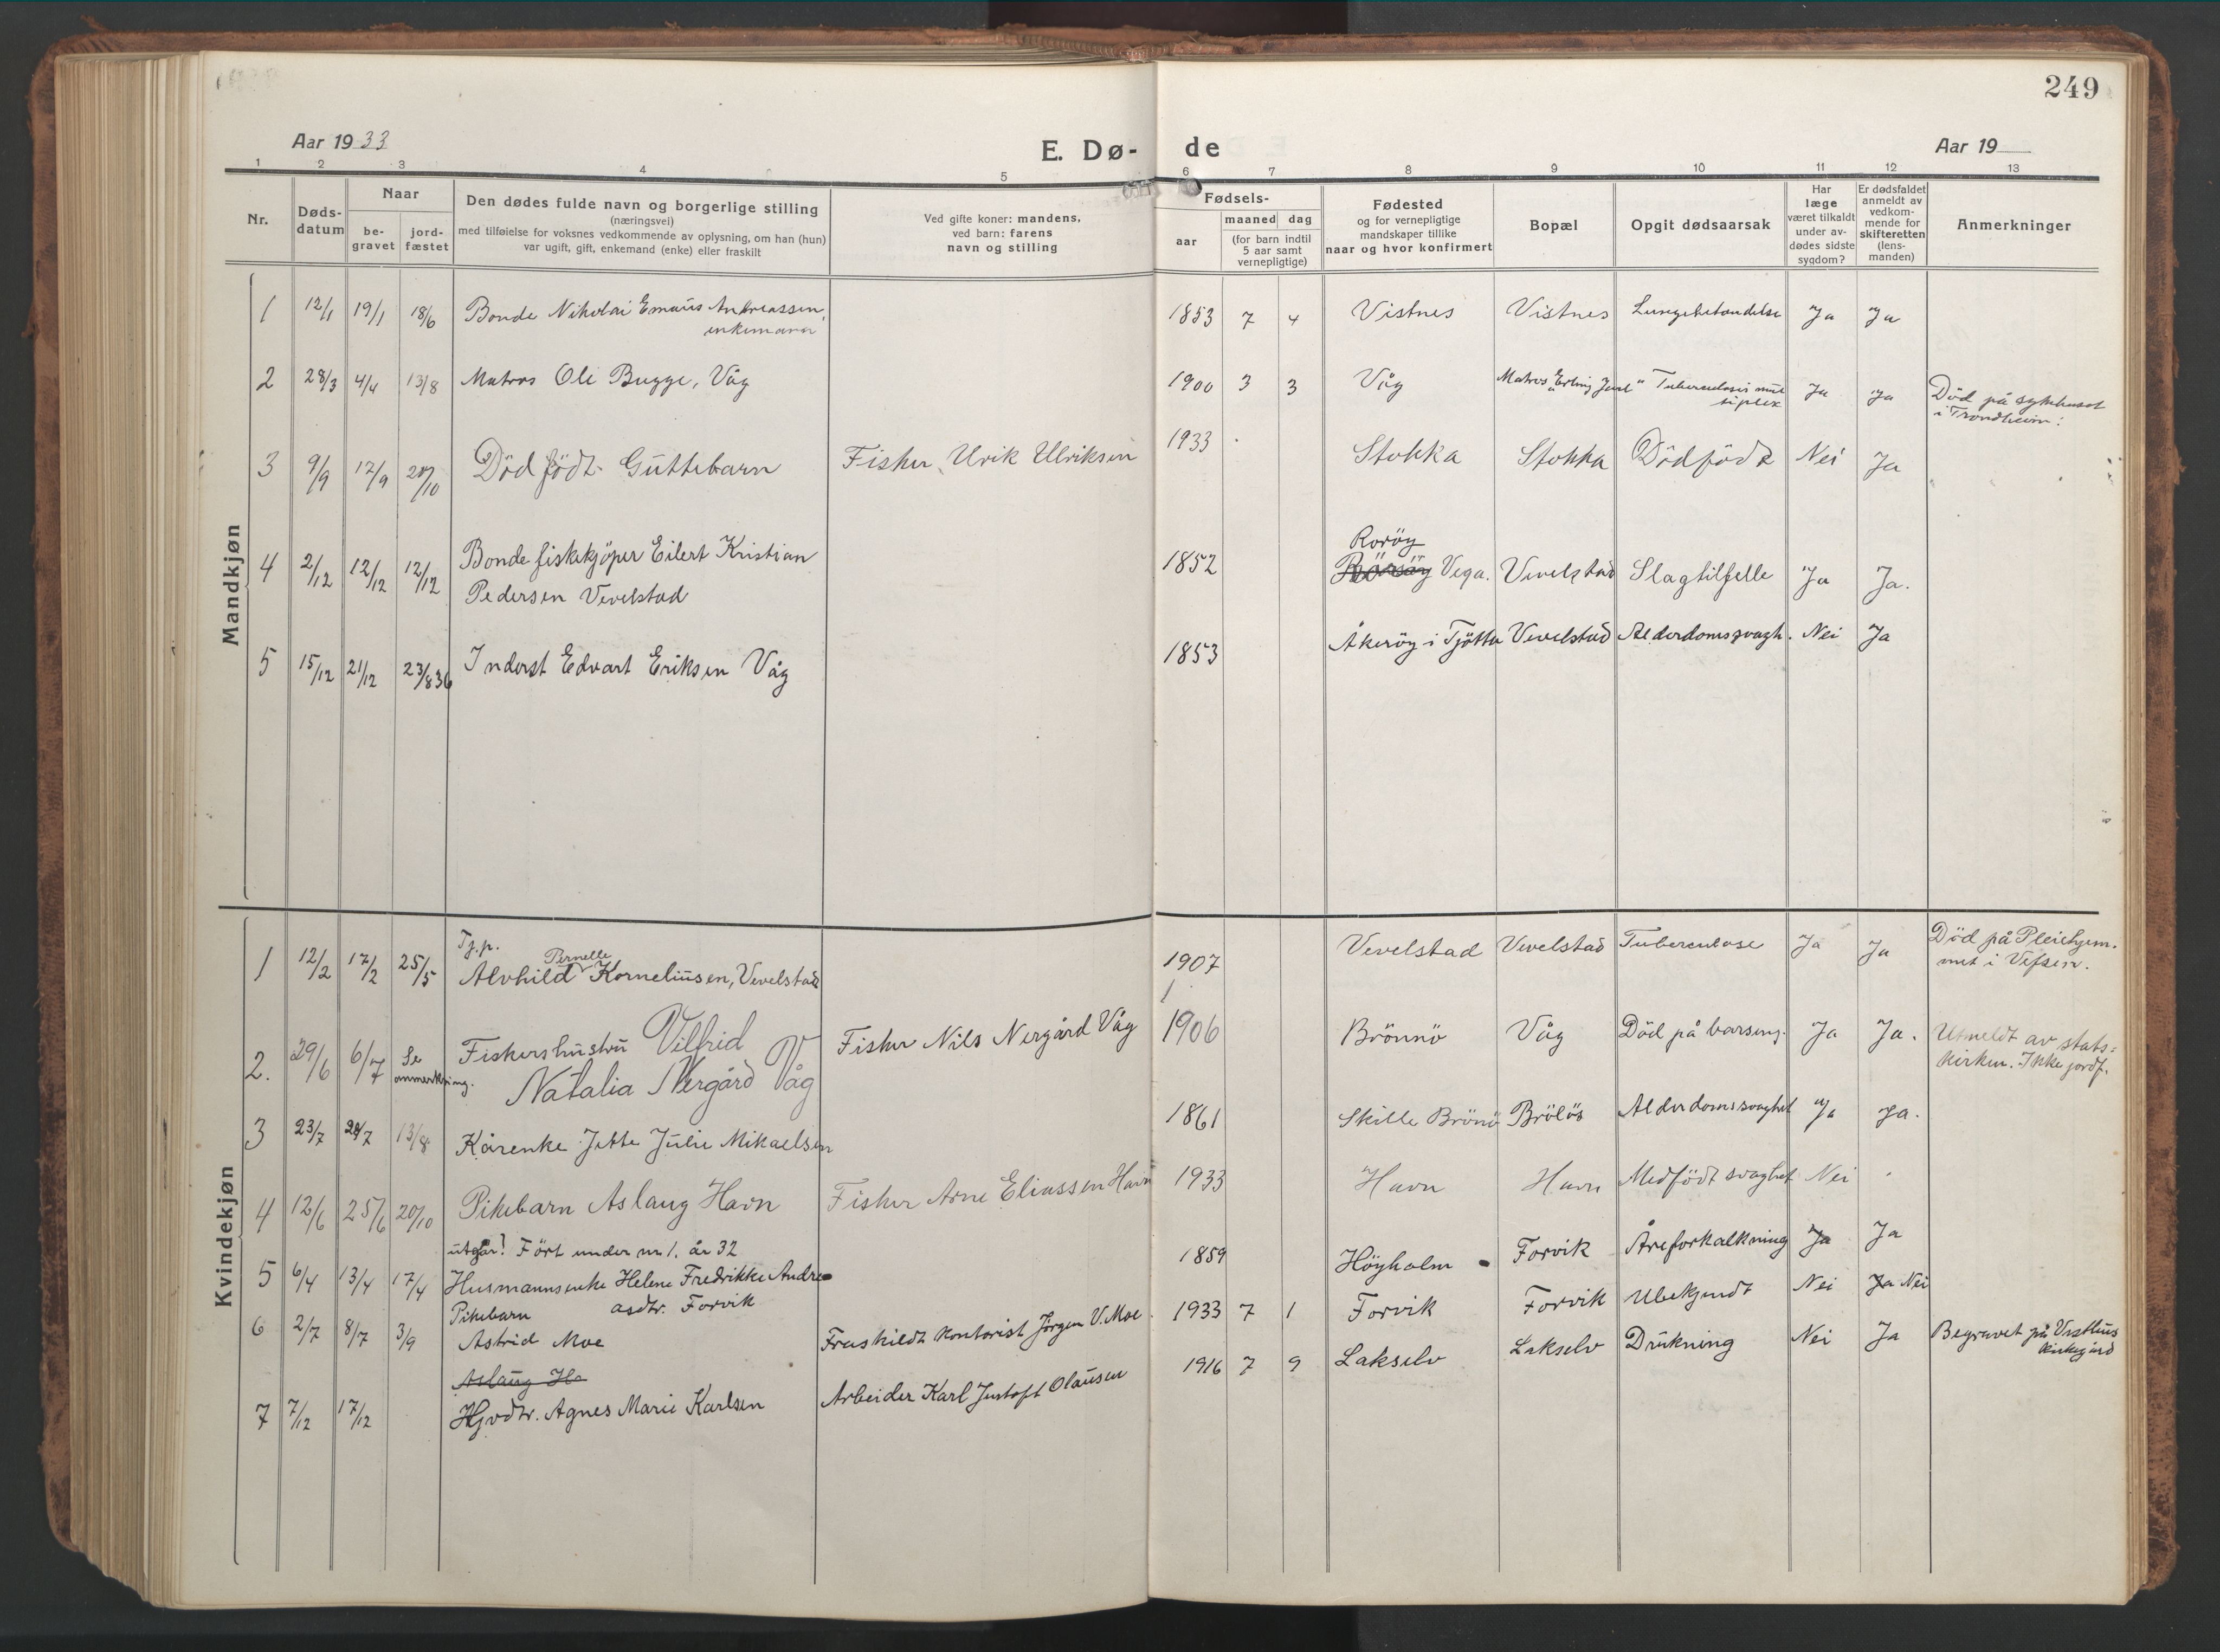 249
Aar 1933
E. Dø-
de
Aar 19
1 2 3 4 5 6 7 8 9 10 11 12 13
Nr.
Døds-
datum
Naar
be-
gravet
jord-
fæstet
Den dødes fulde navn og borgerlige stilling
(næringsvei)
med tilføielse for voksnes vedkommende av oplysning, om han (hun)
var ugift, gift, enkemand (enke) eller fraskilt
Ved gifte koner: mandens,
ved barn: farens
navn og stilling
Fødsels-
aar
maaned dag
(for barn indtil
5 aar samt
vernepligtige)
Fødested
og for vernepligtige
mandskaper tillike
naar og hvor konfirmert
Bopæl
Opgit dødsaarsak
Har
læge
været tilkaldt
under av-
dødes sidste
sygdom?
Er dødsfaldet
anmeldt av
vedkom-
mende for
skifteretten
(lens-
manden)
Anmerkninger
Mandkjøn
1 12/1 19/1 18/6 Bonde Nikolai Emaus Andreassen, 1853 7 4 Vistnes Vistnes Lungebetendelse Ja Ja
enkemann
2 28/3 4/4 13/8 Matros Ole Bugge, Våg 1900 3 3 Våg Matros "Erling Jarl" Tuberculosis mul Ja Ja Död på sykehuset
tiplex i Trondheim.
3 9/9 17/9 20/10 Död födt Guttebarn Fisker Ulrik Ulriksen 1933 Stokka Stokka Dödfödt Nei Ja
Roröy
4 2/12 12/12 12/12 Bonde fiskekjöper Eilert Kristian 1852 Vega. Vevelstad Slagtilfelle Ja Ja.
Pedersen Vevelstad
5 15/12 21/12 23/8 36 Inderst Edvart Eriksen Våg 1853 Åkeröy i Tjötta Vevelstad Alderdomssvagh. Nei Ja
Kvindekjøn
Tj.p. Pernelle
1 12/2 17/2 25/5 Alvhild Korneliusen, Vevelstad 1907 Vevelstad Vevelstad Tuberculose Ja Ja Död på Pleiehjem-
met i Vefsen.
2. 29/6 6/7 Se Fiskershustru Vilfrid Fisker Nils Nergård Våg 1906 Brönnö Våg Död på barseng. Ja Ja. Utmeldt av stats-
anmerkning. Natalia Nergård Våg kirken. Ikke jordf.
3 23/7 28/7 13/8 Kårenke Jette Julie Mikaelsen 1861 Skille Brönö Brölös Alderdomssvaghet Ja Ja.
4 12/6 25/6 20/10 Pikebarn Aslaug Havn Fisker Arne Eliassen Havn 1933 Havn Havn Medfödt svaghet Nei
utgår! Fört under nr 1. år 32
5 6/4 13/4 17/4 Husmannsenke Helene Fredrikke Andre- 1859 Höyholm Forvik Åreforkalkning Ja Ja
asdtr. Forvik
Pikebarn
6 2/7 8/7 3/9 Astrid Moe Fraskildt Kontorist Jörgen V. Moe. 1933 7 1 Forvik Forvik Ubekjendt Nei Ja Nei
Aslaug Ha
7 7/12 17/12 Hjvdtr. Agnes Marie Karlsen Arbeider Karl Justoft Olausen 1916 7 9 Lakselv Lakselv Drukning Nei Ja Begravet på Vesthus
Kirkegård